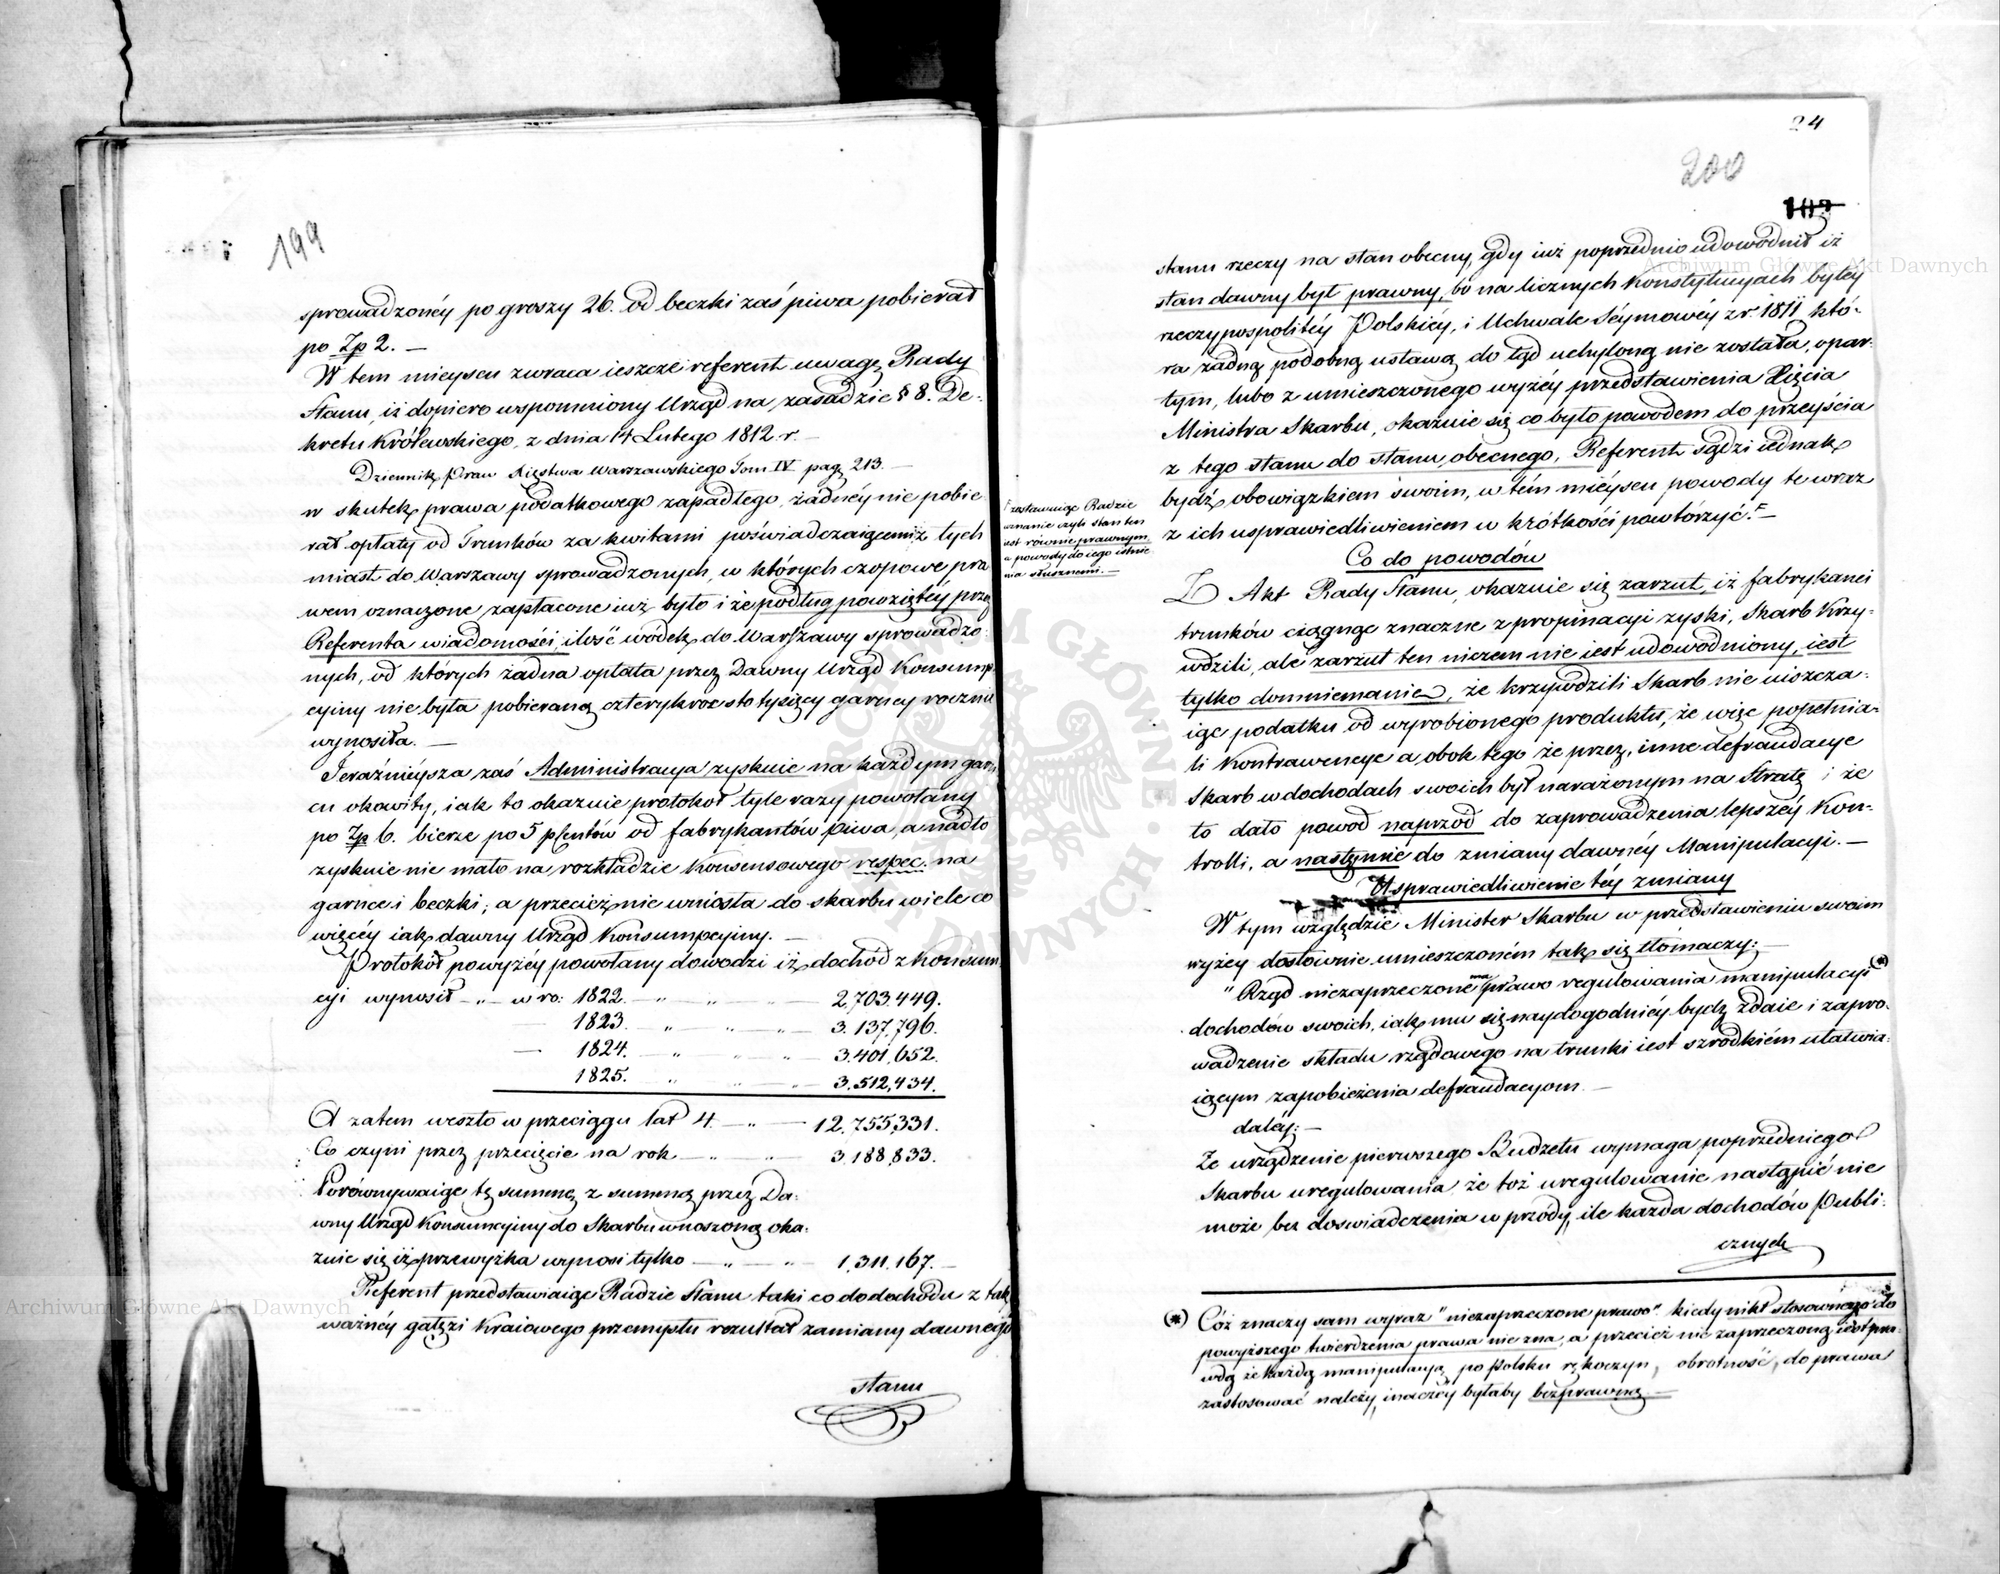 199
sprowadzonéy po groszy 26. od beczki zaś piwa pobierał
po Zp 2. —
W tem mieyscu zwraca ieszcze referent uwagę Rady
Stanu, iż dopiero wspomniony Urząd na zasadzie § 8. De-
kretu Królewskiego z dnia 14 Lutego 1812 r. —
Dziennik Praw Xięstwa Warszawskiego Tom IV pag 213. —
w skutek prawa podatkowego zapadłego, żadnéy nie pobie
rał opłaty od Trunków za kwitami poświadczaiącemi z tych
miast do Warszawy sprowadzonych, w których czopowe pra
wem oznaczone zapłacone iuż było i że podług powziętéy przez
Referenta wiadomości, ilość wódek do Warszawy sprowadzo-
nych, od których żadna opłata przez Dawny Urząd Konsump
cyiny nie była pobieraną czterykroć sto tysięcy garncy rocznie
wynosiła. —
Teraźnieysza zaś Administracya zyskuie na każdym garn
cu okowity, iak to okazuie protokół tyle razy powołany
po Zp 6. bierze po 5 pCentów od fabrykantów piwa, a nadto
zyskuie nie mało na rozkładzie Konsensowego respec. na
garnce i beczki; a przecież nie wniosła do skarbu wiele co
więcéy iak dawny Urząd Konsumpcyiny. —
Protokół powyżéy powołany dowodzi iż dochód z Konsum
cyi wynosił — „ — w ro: 1822. — „ — „ — 2,703,449.
— 1823. — „ — „ — 3.137,796.
— 1824. — „ — „ — 3.401,652.
1825. — „ — „ — 3.512,434.
A zatem weszło w przeciągu lat 4. — „ — 12.755,331.
Co czyni przez przecięcie na rok — „ — „ — 3,188,833.
Porównywaiąc tę summę z summą przez Da-
wny Urząd Konsumcyiny do Skarbu wnoszoną oka-
zuie się iż przewyżka wynosi tylko — „ — „ — 1,311,167. —
Referent przedstawiaiąc Radzie Stanu taki co do dochodu z tak
ważnéy gałęzi Kraiowego przemysłu rezultat zamiany dawnego
stanu
24
200
103
stanu rzeczy na stan obecny, gdy iuż poprzednio udowodnił iż
stan dawny był prawny, bo na licznych Konstytucyach byłéy
rzeczypospolitéy Polskiéy, i Uchwale Séymowéy z r. 1811 któ-
ra żadną podobną ustawą do tąd uchyloną nie została, opar-
tym, lubo z umieszczonego wyżéy przedstawienia Xięcia
Ministra Skarbu, okazuie się co było powodem do przeyścia
z tego stanu do stanu obecnego, Referent sądzi iednak
bydź obowiązkiem swoim, w tém mieyscu powody te wraz
z ich usprawiedliwieniem w krótkości powtórzyć. F —
F zostawuiąc Radzie
uznanie czyli stan ten
iest równie prawnym,
a powody do iego istnie
nia słusznemi. —
Co do powodów
Z Akt Rady Stanu, okazuie się zarzut, iż fabrykanci
trunków ciągnąc znaczne z propinacyi zyski, Skarb Krzy-
wdzili, ale zarzut ten niczem nie iest udowodniony, iest
tylko domniemanie, że krzywdzili Skarb nie uiszcza-
iąc podatku od wyrobionego produktu, że więc popełnia-
li Kontrawencye a obok tego że przez inne defraudacye
Skarb w dochodach swoich był narażonym na Stratę i że
to dało powod naprzód do zaprowadzenia lepszéy Kon-
trolli, a następnie do zmiany dawnéy Manipulacyi. —
Usprawiedliwienie téy zmiany
W tym względzie Minister Skarbu w przedstawieniu swoim
wyżey dosłownie umieszczoném tak się tłómaczy: —
„ Rząd niezaprzeczone ma prawo regulowania manipulacyi (*)
dochodów swoich, iak mu się naydogodniéy bydź zdaie i zapro-
wadzenie składu rządowego na trunki iest szrodkiém ułatwia-
iącym zapobieżenia defraudacyom. —
daléy: —
Że urządzenie pierwszego Budżetu wymaga poprzedniego
Skarbu uregulowania, że toż uregulowanie nastąpić nie
może bez doswiadczenia w przódy, ile każda dochodów Publi-
cznych
(*) Cóż znaczy sam wyraz "niezaprzeczone prawo" kiedy nikt stosownego do
powyższego twierdzenia prawa nie zna, a przecież nie zaprzeczoną iest pra-
wdą że każdą manipulacyą po polsku rękoczyn, obrotność, do prawa
zastosować należy, inaczéy byłaby bezprawną —